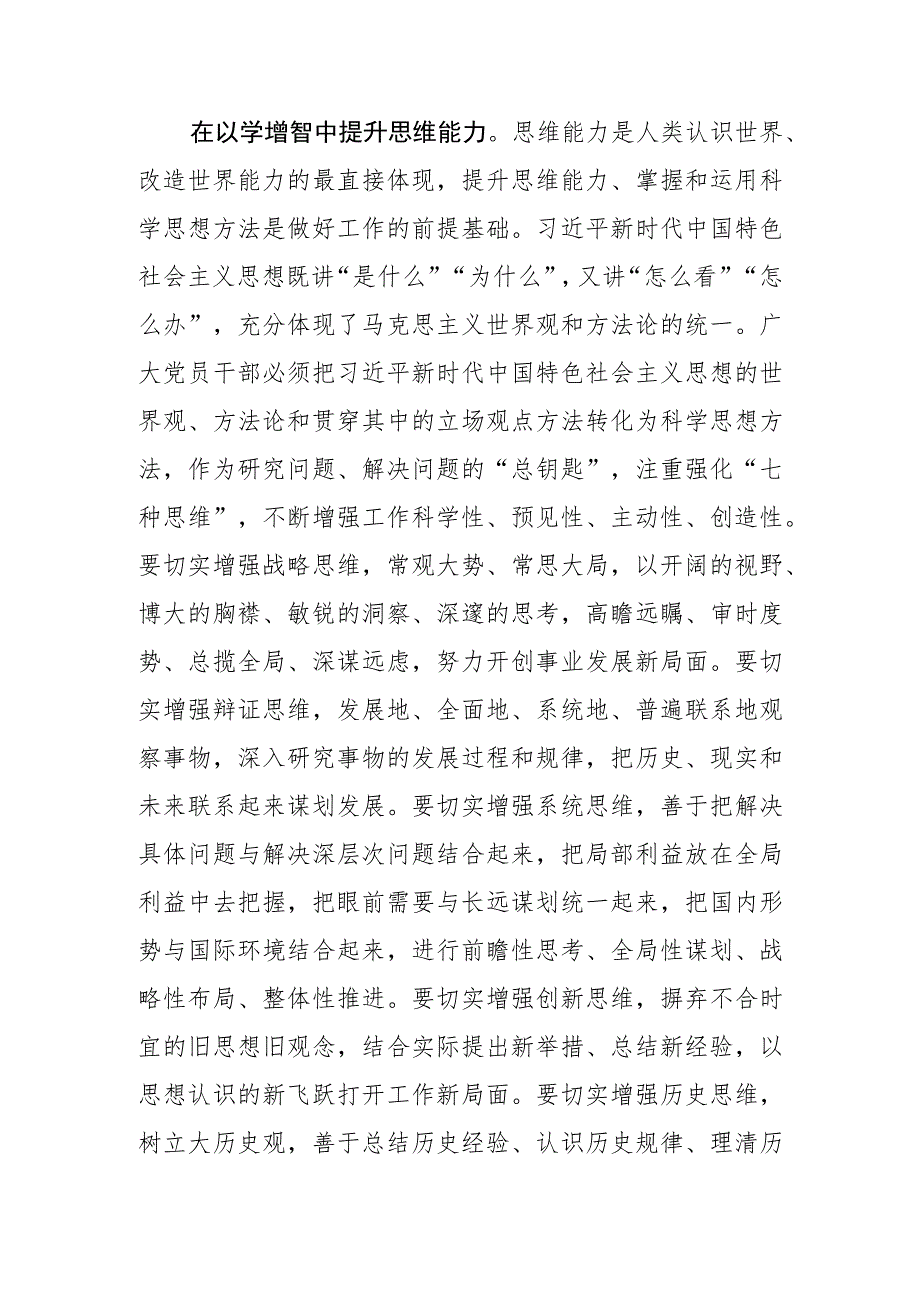 在以学增智中提升思维能力。思维能力是人类认识世界、
改造世界能力的最直接体现，提升思维能力、掌握和运用科
学思想方法是做好工作的前提基础。习近平新时代中国特色
社会主义思想既讲“是什么”“为什么”，又讲“怎么看”“怎
么办”，充分体现了马克思主义世界观和方法论的统一。广
大党员干部必须把习近平新时代中国特色社会主义思想的世
界观、方法论和贯穿其中的立场观点方法转化为科学思想方
法，作为研究问题、解决问题的“总钥匙”，注重强化“七
种思维”，不断增强工作科学性、预见性、主动性、创造性。
要切实增强战略思维，常观大势、常思大局，以开阔的视野、
博大的胸襟、敏锐的洞察、深邃的思考，高瞻远瞩、审时度
势、总揽全局、深谋远虑，努力开创事业发展新局面。要切
实增强辩证思维，发展地、全面地、系统地、普遍联系地观
察事物，深入研究事物的发展过程和规律，把历史、现实和
未来联系起来谋划发展。要切实增强系统思维，善于把解决
具体问题与解决深层次问题结合起来，把局部利益放在全局
利益中去把握，把眼前需要与长远谋划统一起来，把国内形
势与国际环境结合起来，进行前瞻性思考、全局性谋划、战
略性布局、整体性推进。要切实增强创新思维，摒弃不合时
宜的旧思想旧观念，结合实际提出新举措、总结新经验，以
思想认识的新飞跃打开工作新局面。要切实增强历史思维，
树立大历史观，善于总结历史经验、认识历史规律、理清历